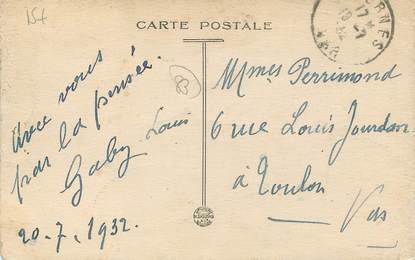 154
CARTE POSTALE
83
Avec vous
par la pensée.
Gaby Louis
20-7-1932
Mmes Perrimond
6 rue Louis Jourdan
à Toulon
Var